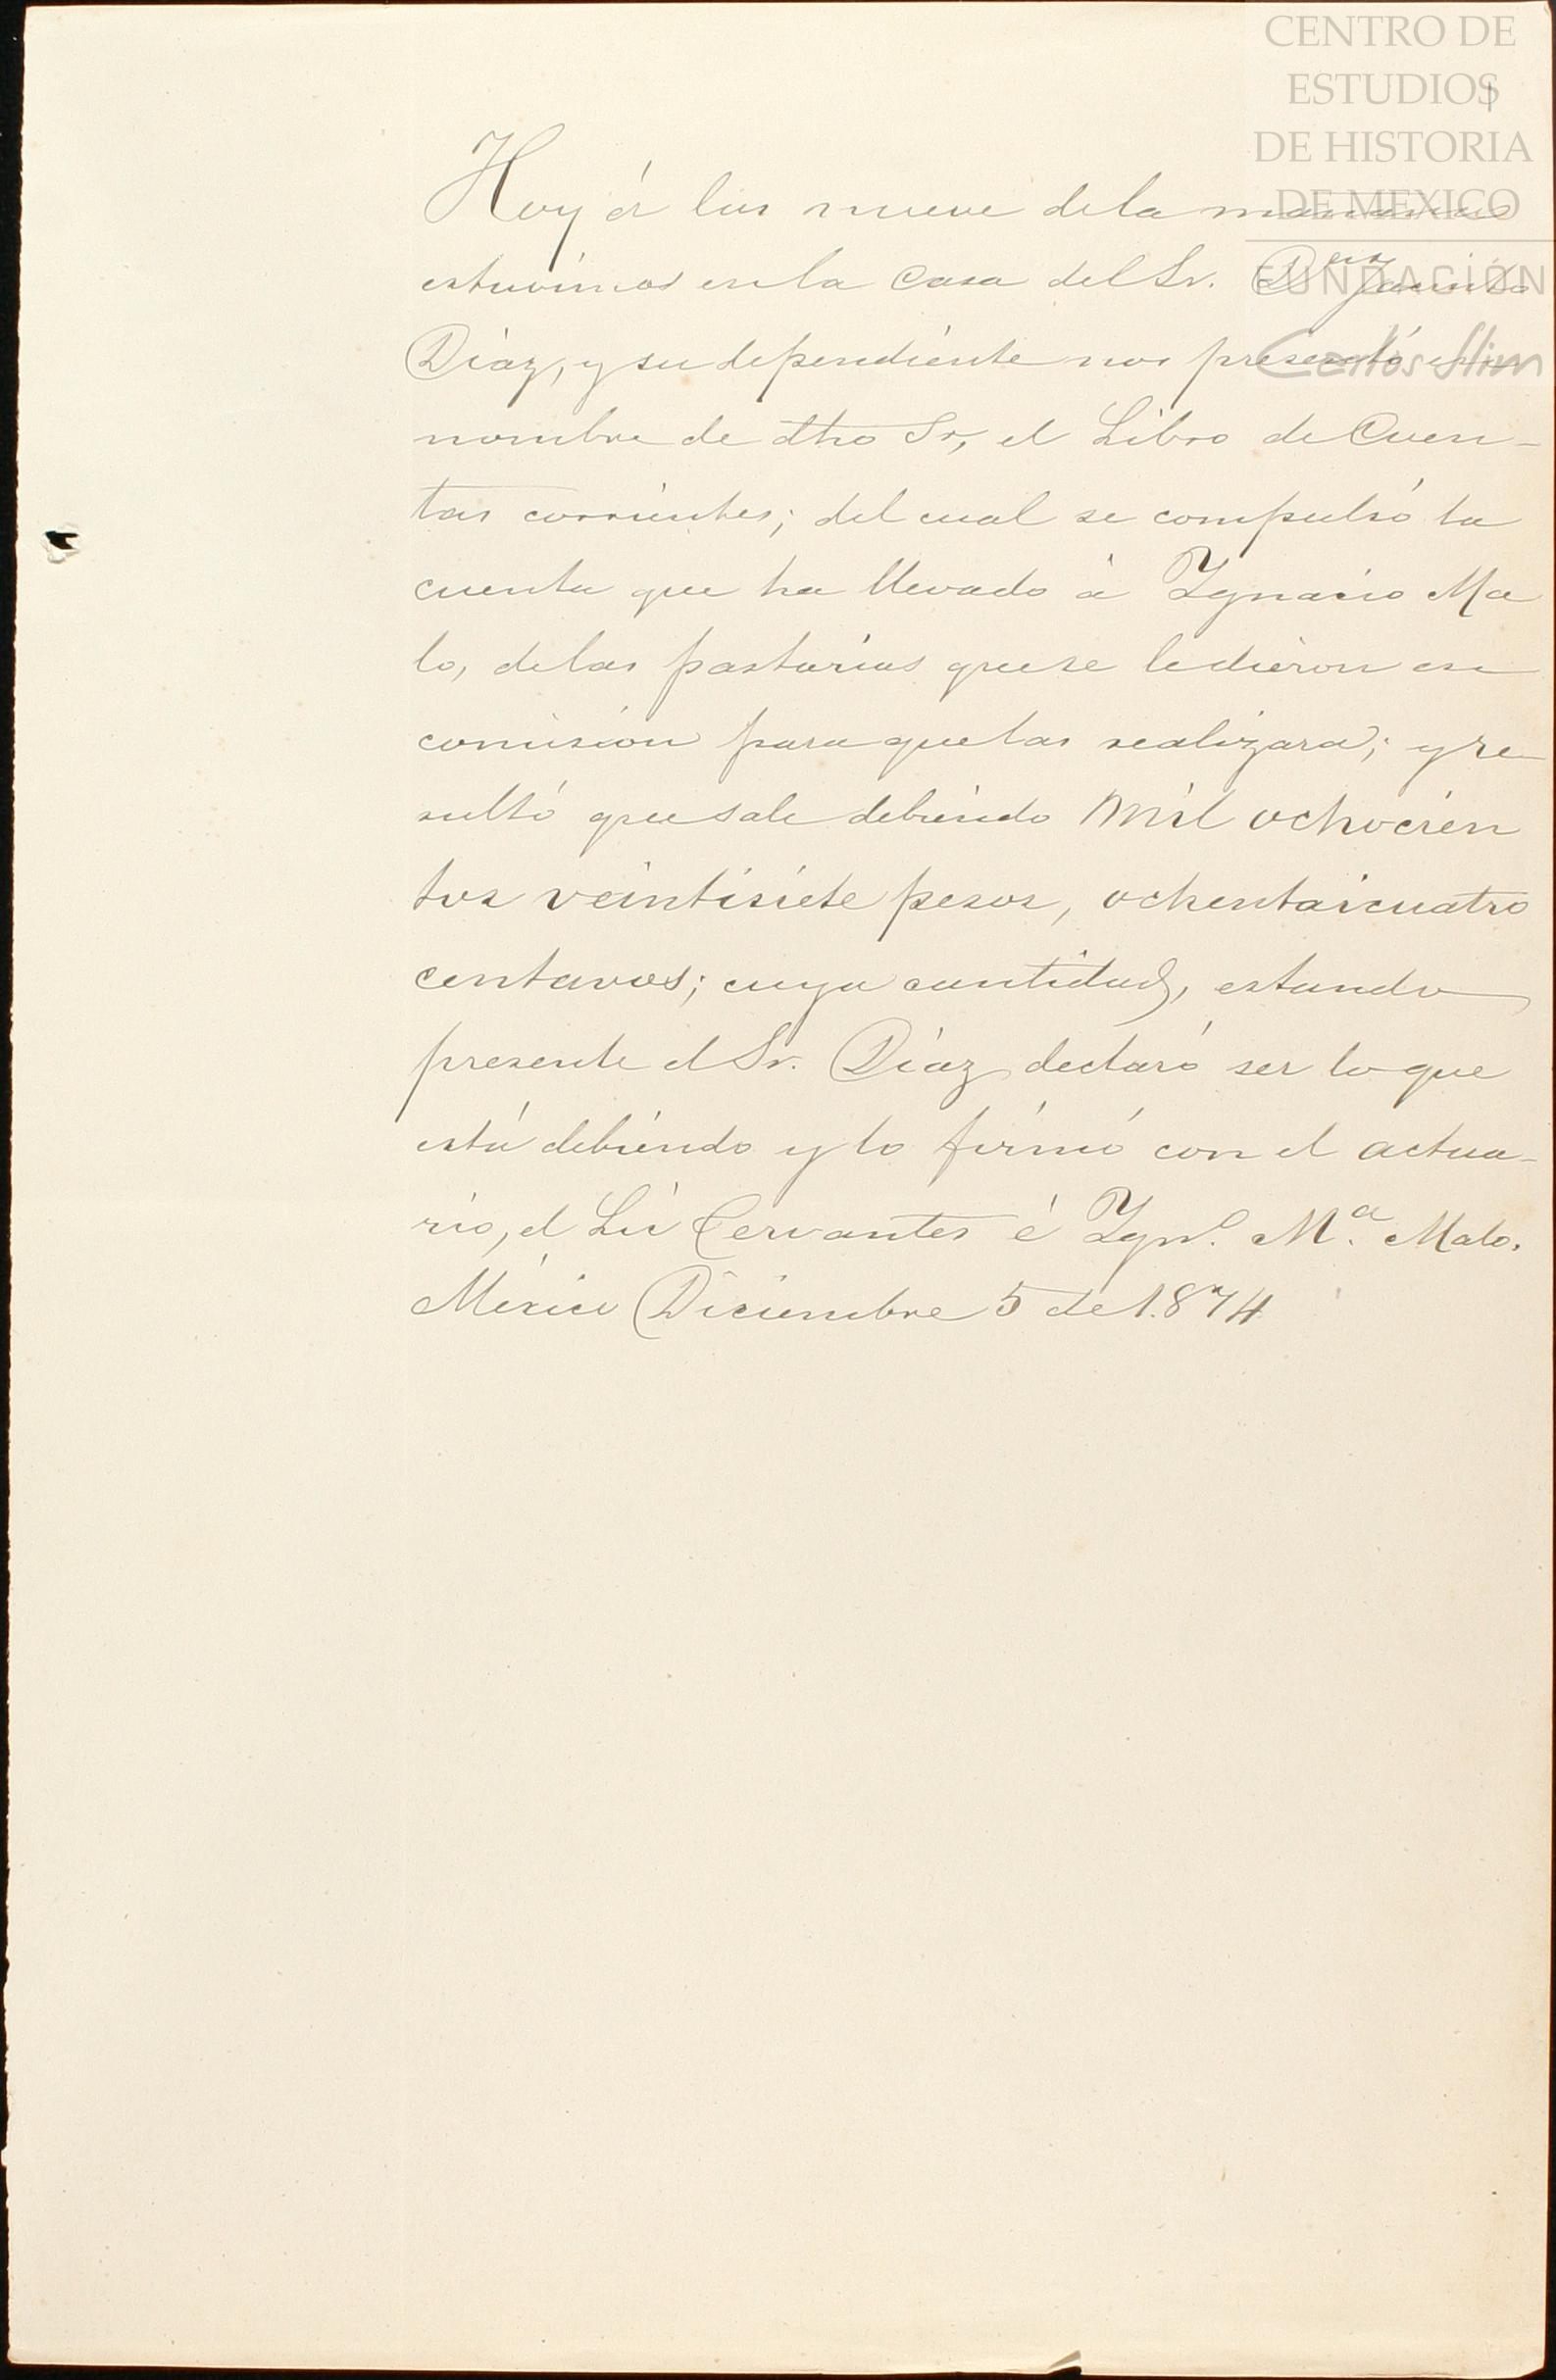 CENTRO DE
ESTUDIOS
DE HISTORIA
DE MEXICO
FUNDACIÓN
Carlos Slim
Hoy á las nueve de la mañana
estuvimos en la Casa del Sr. Dn Jacinto
Díaz, y su dependiente nos presentó en
nombre de dho Sr, el Libro de Cuen-
tas corrientes; del cual se compulsó la
cuenta que ha llevado á Ygnacio Ma
lo, de las pasturias que se le dieron en
comision para que las realizara; y re
sultó que sale debiendo Mil ochocien
tos veintisiete pesos, ochentaicuatro
centavos; cuya cantidad, estando
presente el Sr. Díaz declaró ser lo que
está debiendo y lo firmó con el actua-
rio, el Lic Cervantes é Ygno. Ma. Malo.
México Diciembre 5 de 1.874